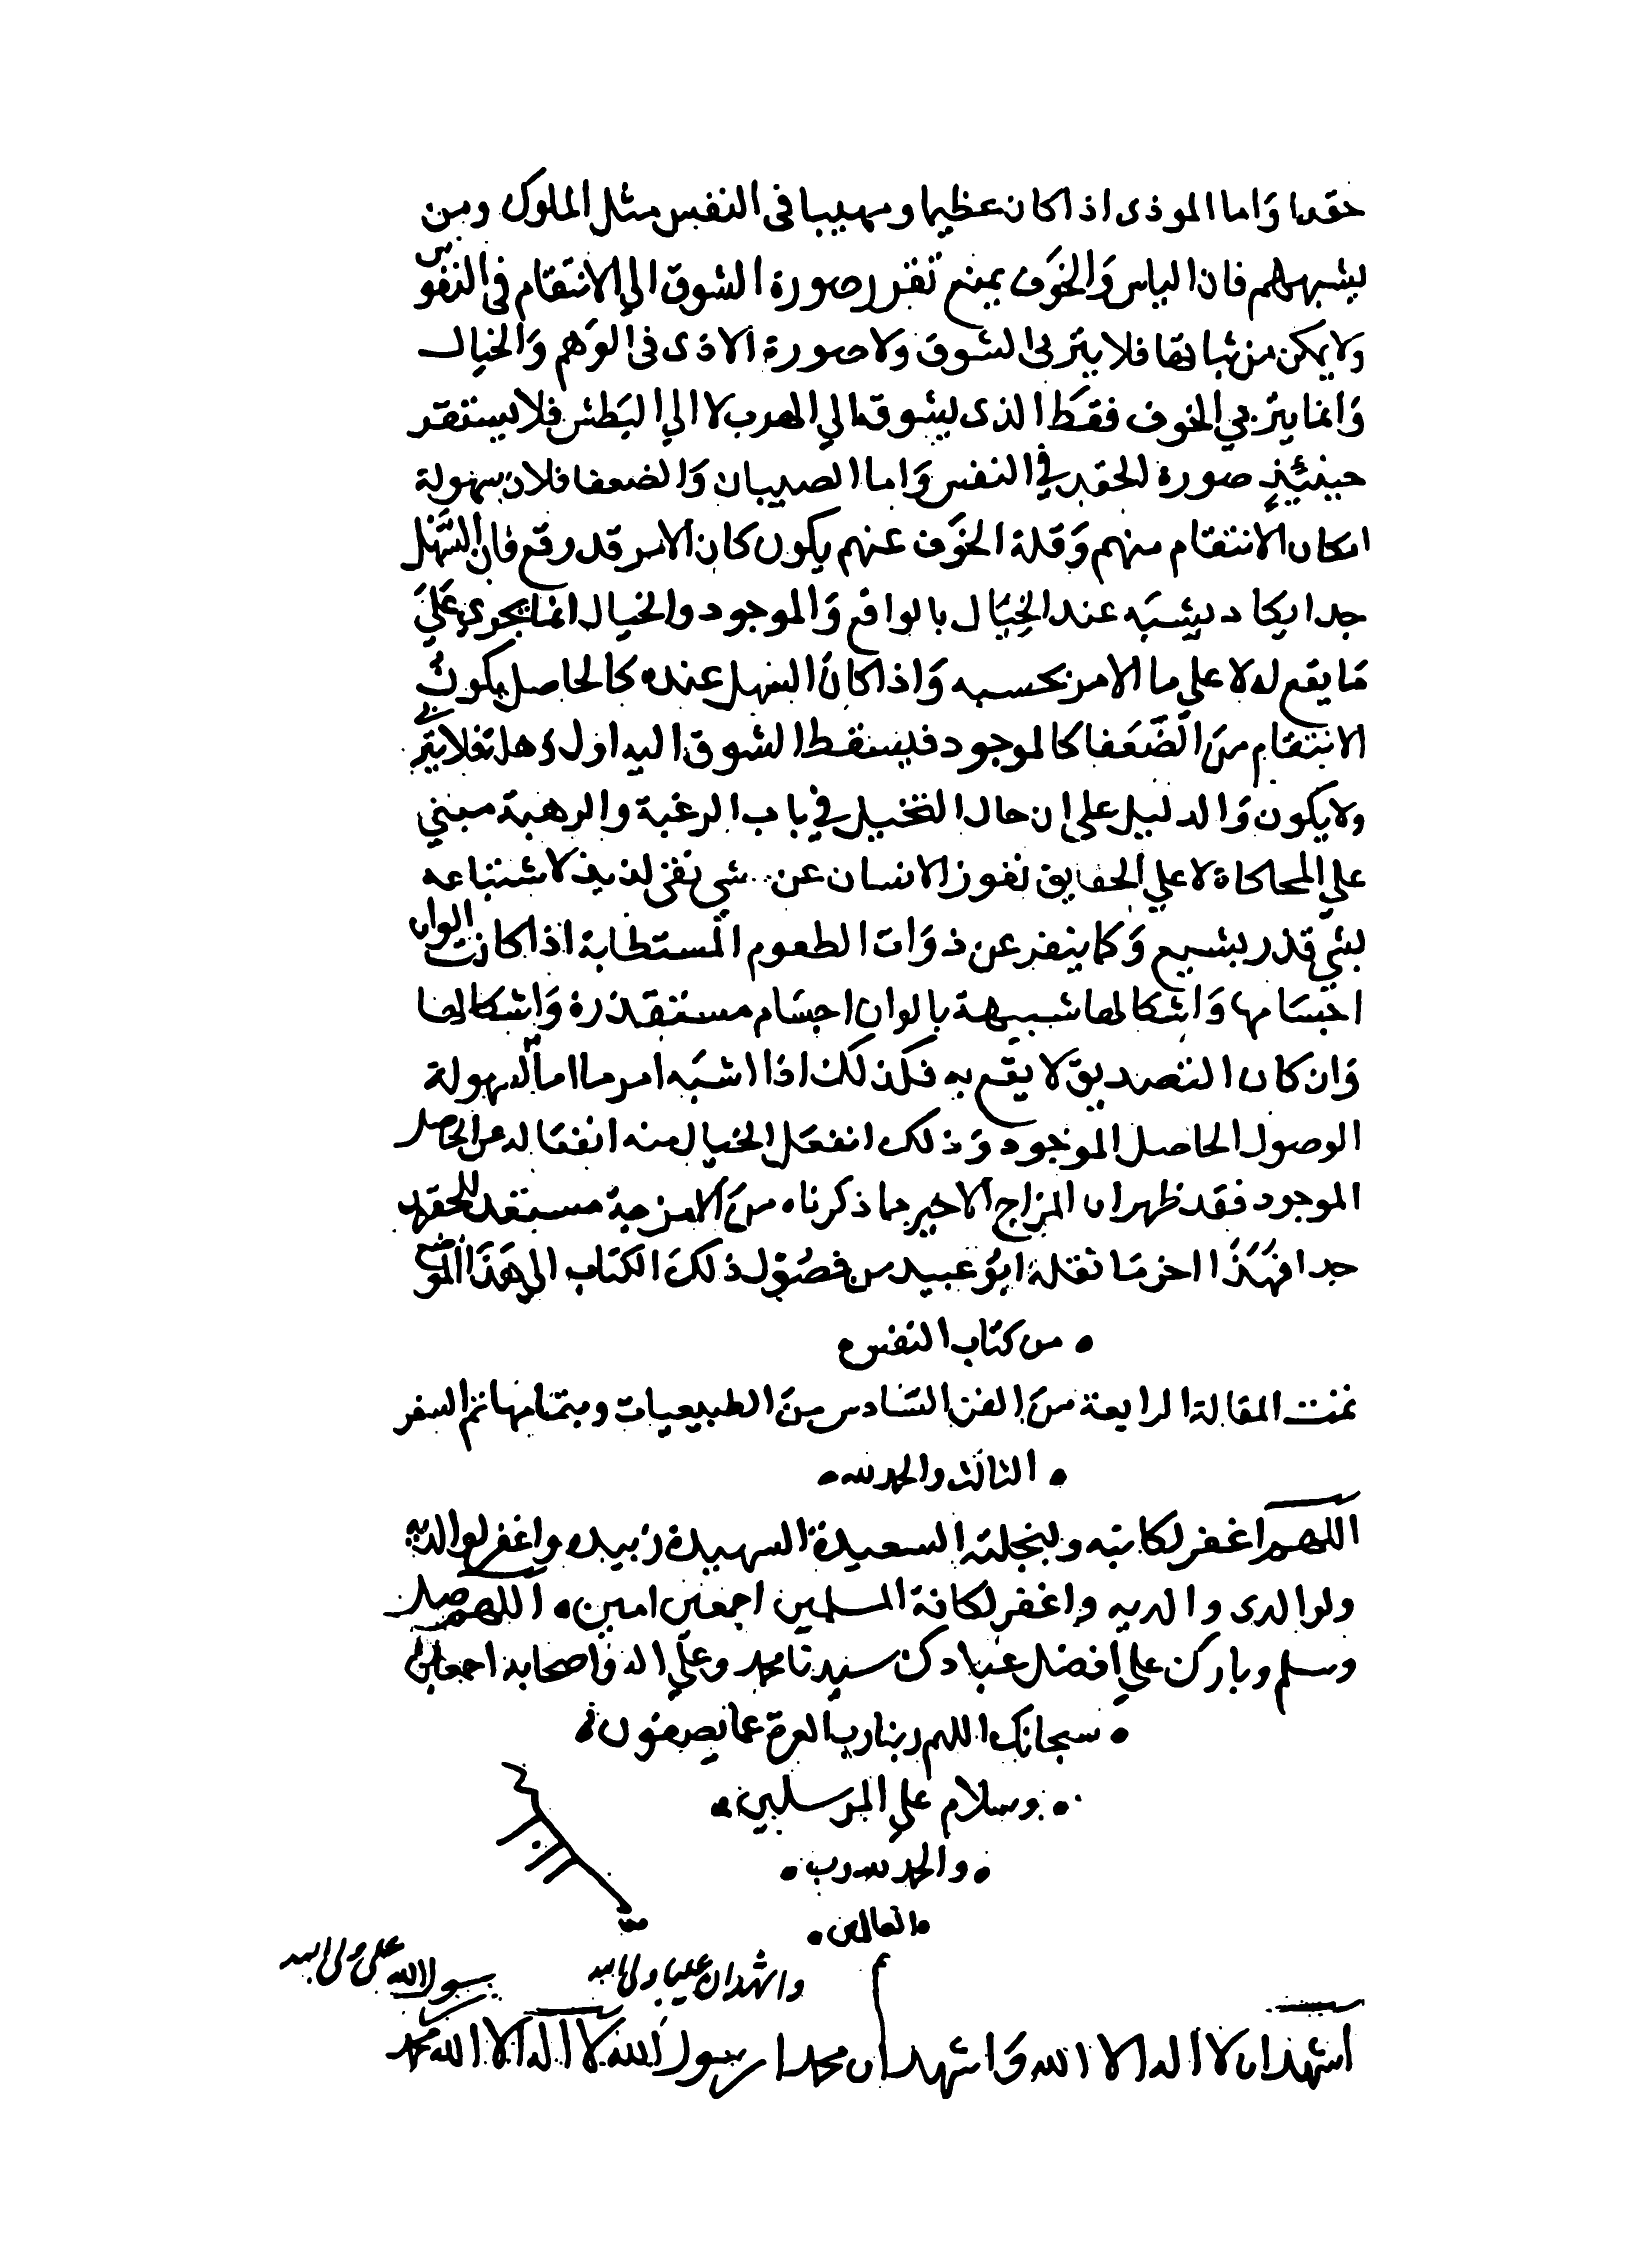 حقدا وَاما الموذى اذا كان عظيما ومهيبا فى النفس مثل الملوك ومن
يشبههم فان الياس وَالخوَف يمنع تقرر صورة الشوق الي الانتقام فى النفوس
ولا يمكن من ثباتها فلا يتربى الشوق ولا صورة الاذى فى الوَهم وَالخيال
وَانما يتربي الخوف فقَط الذى يشوق الي الهرب لا الي البَطش فلا يستقر
حينئيذٍ صورة الحقد في النفس وَاما الصبيان وَالضعفا فلان سهولة
امكان الانتقام منهم وَقلة الخوَف عنهم يكون كان الامر قد وقع فان السَّهْل
جدا يكاد يشبَه عند الخِيَال بالواقع وَالموجود والخيال انما يجرى عَليَ
مَا يقع له لا علي ما الامر بحسبه وَاذا كانَ السهل عنده كالحاصل يكون
الانتقام منَ الضَّعَفا كالموجود فيسقط الشوق اليه اول وهلة فلا يتربي
ولا يكون وَالدليل علي ان حال التخيل في باب الرغبة والرهبة مبني
علي المحاكاة لا علي الحقايق نفور الانسان عن شي نقى لذيذ لاشتباعه
بشي قذر بشيع وَكما ينفر عن ذوَات الطعوم المستطابة اذا كانت الوان
اجسَامها وَاشكالها شبيهة بالوان اجسَام مستقذرة وَاشكالها
وَان كان التصديق لا يقع به فكذلك اذا اشبَه امر ما اما لسهولة
الوصول الحاصل الموجود وَذلك انفعَل الخيال منه انفعَاله عن الحاصل
الموجود فقد ظهر ان المزاج الاخير مما ذكرناه منَ الامزجة مستعد للحقد
جدا فهَذَا اخر مَا نقله ابوُ عبيد من فصُوْل ذلكَ الكتاب الي هَذَا الموضع
• من كتاب النفس
تمت المقالة الرابعة منَ الفن السَّادس منَ الطبيعيات وبتمامها تم السفر
• الثالث والحمد لله •
اللهم اغفر لكاتبه ولنجلته السعيدة السهيدة زبيده واغفر لوالديه
ولوالدى والديه واغفر لكافة المسلمين اجمعين امين • اللهم صل
وسلم وبارك علي افضل عبادك سيدنا محمد وعلي اله واصحابه اجمعين
• سبحانك اللهم ربنا رب العزة عما يصفون •
• وسلام علي المرسلين •
• والحمد لله رب •
• العالمين •
واشهد ان عليا ولى الله
رسول الله على ولى الله
اشهد ان لا اله الا الله وَاشهد ان محمدا رسول الله لا اله الا الله محمد